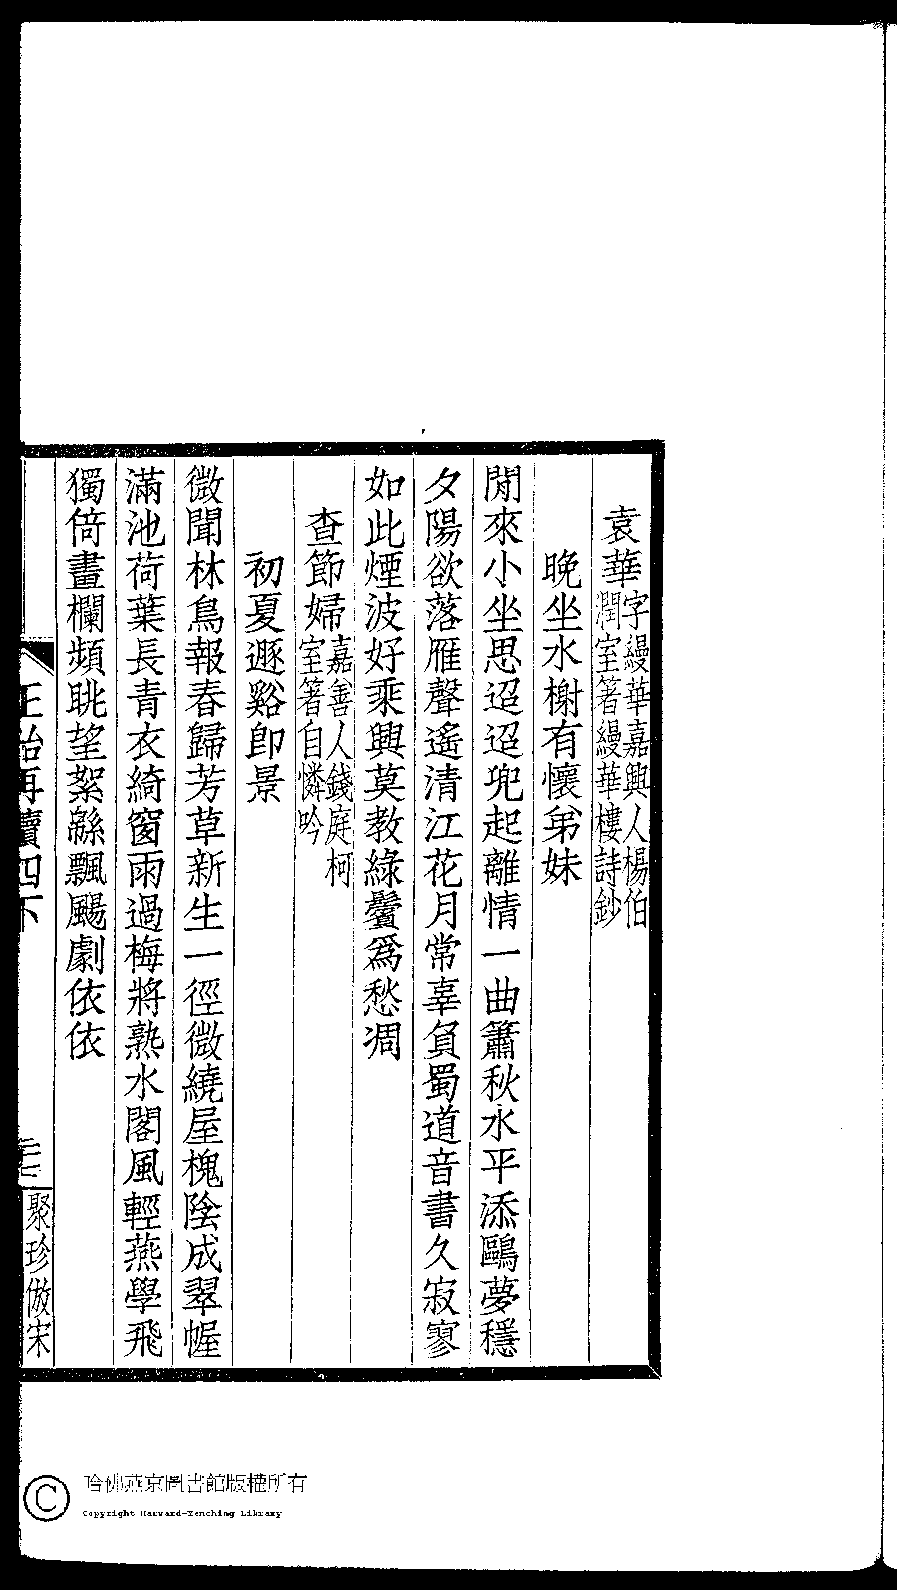 袁華字縵華嘉興人楊伯潤室著縵華樓詩鈔
晚坐水榭有懷弟妹
閒來小坐思迢迢兜起離情一曲簫秋水平添鷗夢穩
夕陽欲落雁聲遙清江花月常辜負蜀道音書久寂寥
如此煙波好乘興莫教綠鬢爲愁凋
查節婦嘉善人錢庭柯室著自憐吟
初夏遯谿卽景
微聞林鳥報春歸芳草新生一徑微繞屋槐陰成翠幄
滿池荷葉長青衣綺窗雨過梅將熟水閣風輕燕學飛
獨倚畫欄頻眺望絮緜飄颺劇依依
正始再續四下
聚珍倣宋
哈佛燕京圖書館版權所有
Copyright Harvard-Yenching Library